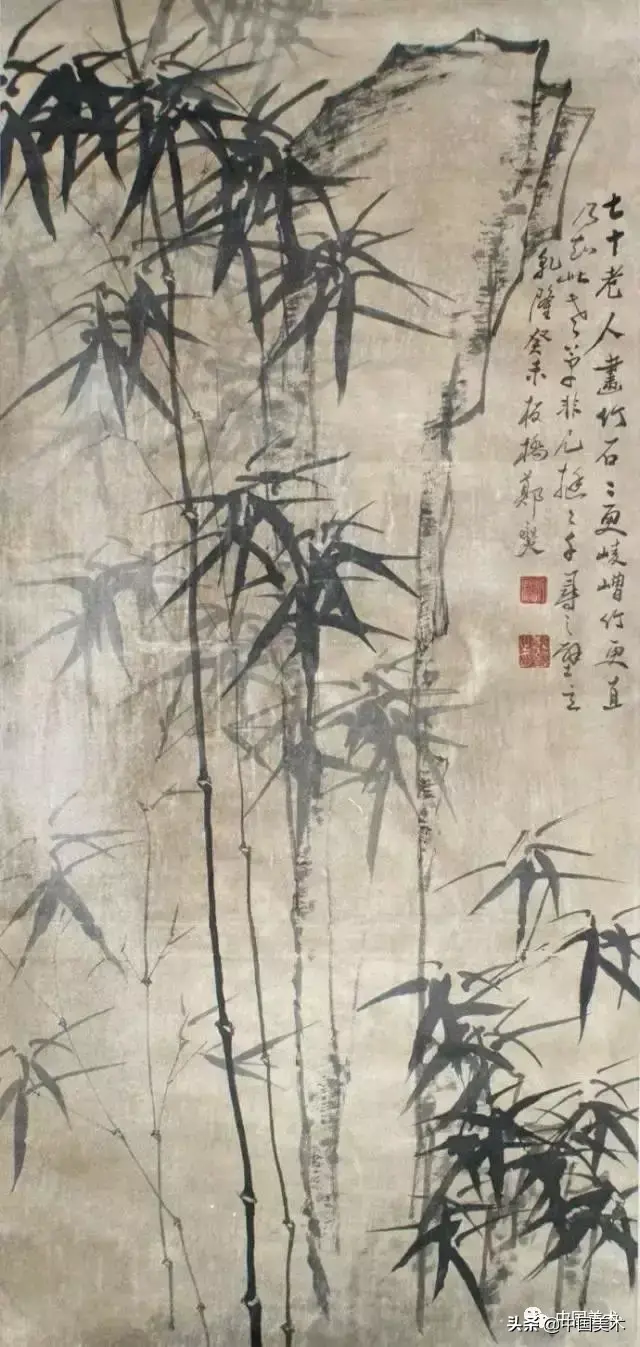 七十老人畫竹石〻更崚嶒竹更直
乃知此老筆非凡挺〻千尋之壁立
乾隆癸未板橋鄭燮
中国美术
头条 @中国美术